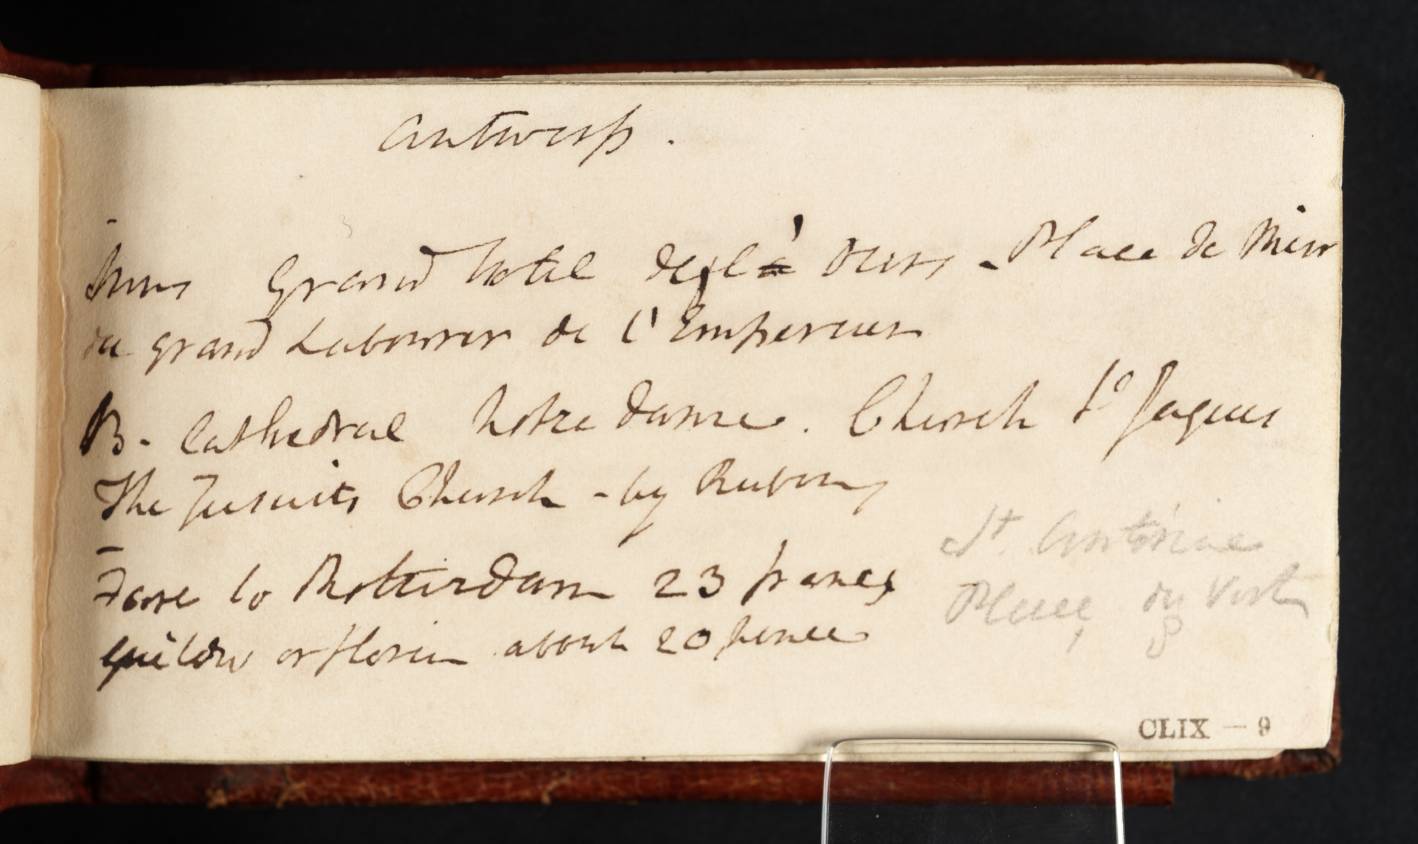 Antwerp.
Inns Grand Hotel de l' Ours - Place de Mier
du grand Labourer de l'Empereur
B. Cathedral Notre Dame. Church St Jaques
The Jesuits Church - by Rubens
Fare to Rotterdam 23 francs
guilder or florin about 20 pence
St. Antoine
Place, du Vert
CLIX - 9